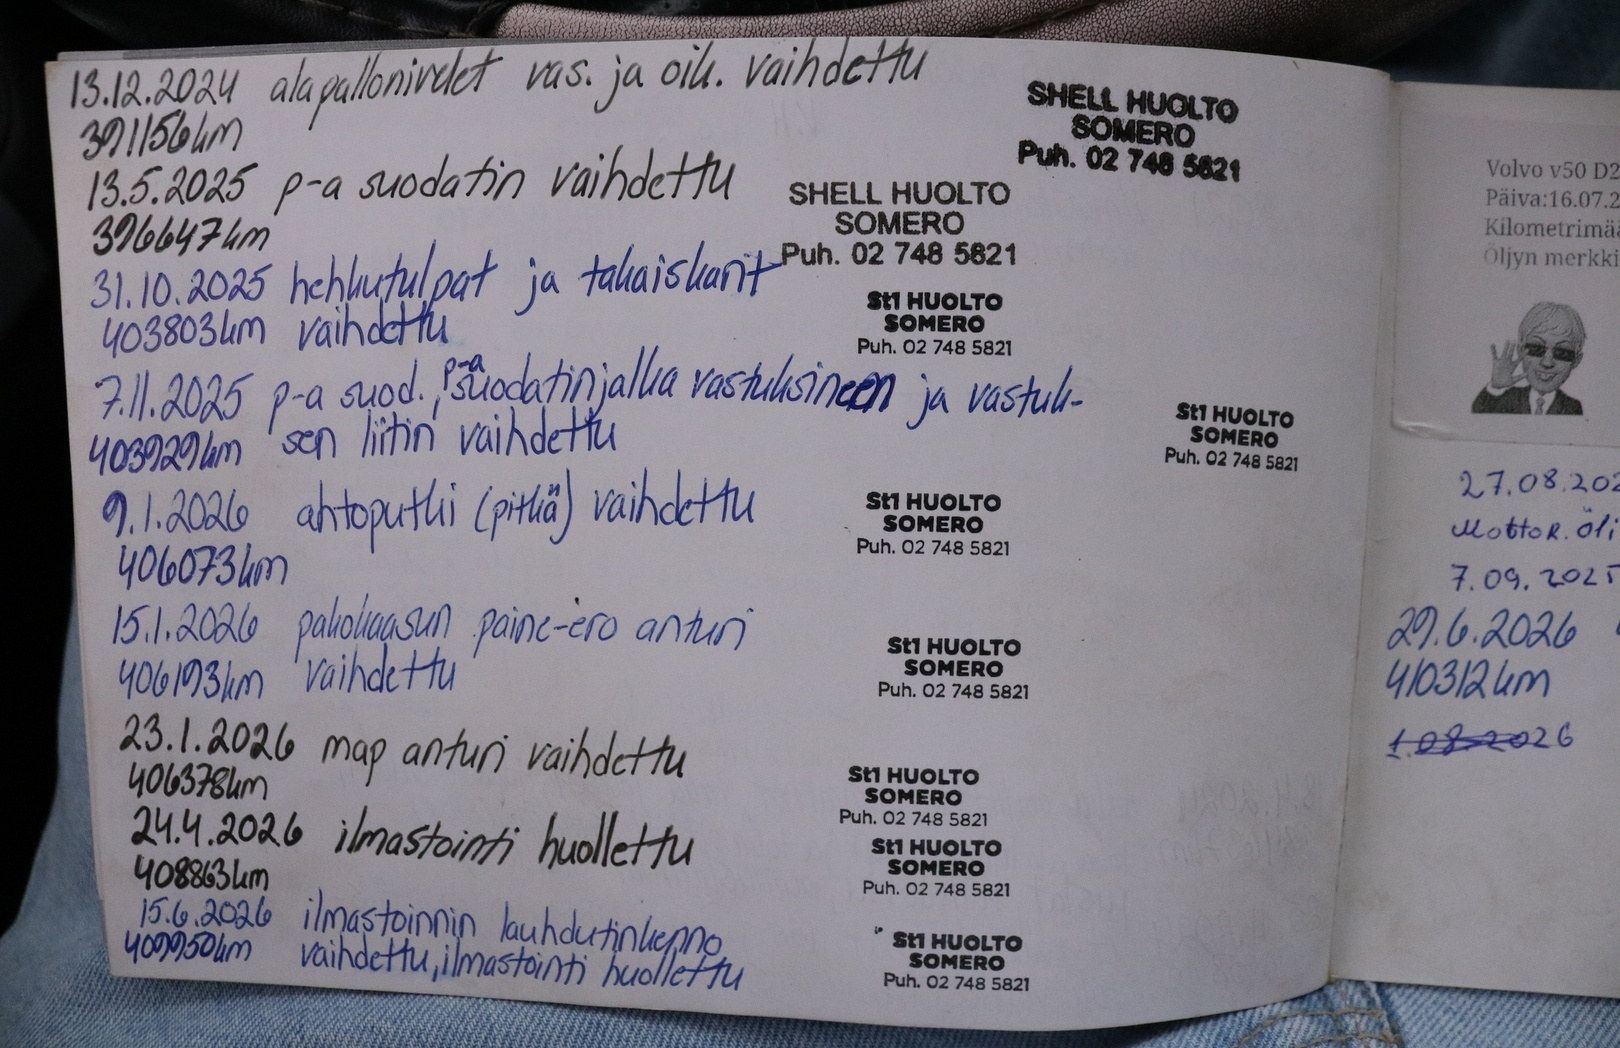 13.12.2024 alapallonivelet vas. ja oik. vaihdettu
391156km
SHELL HUOLTO
SOMERO
Puh. 02 748 5821
13.5.2025 p-a suodatin vaihdettu
396647km
SHELL HUOLTO
SOMERO
Puh. 02 748 5821
31.10.2025 hehkutulpat ja takaiskarit
403803km vaihdettu
St1 HUOLTO
SOMERO
Puh. 02 748 5821
7.11.2025 p-a suod., p-a suodatinjalka vastuksineen ja vastuk-
403929km sen liitin vaihdettu
St1 HUOLTO
SOMERO
Puh. 02 748 5821
9.1.2026 ahtoputki (pitkä) vaihdettu
406073km
St1 HUOLTO
SOMERO
Puh. 02 748 5821
15.1.2026 pakokaasun paine-ero anturi
406193km vaihdettu
St1 HUOLTO
SOMERO
Puh. 02 748 5821
23.1.2026 map anturi vaihdettu
406378km
St1 HUOLTO
SOMERO
Puh. 02 748 5821
24.4.2026 ilmastointi huollettu
408863km
St1 HUOLTO
SOMERO
Puh. 02 748 5821
15.6.2026 ilmastoinnin lauhdutinkenno
409950km vaihdettu, ilmastointi huollettu
St1 HUOLTO
SOMERO
Puh. 02 748 5821
Volvo v50 D2
Päiva:16.07.2
Kilometrimää
Öljyn merkki
27.08.202
Mottor. öli
7.09.2025
29.6.2026
410312km
1.08.2026